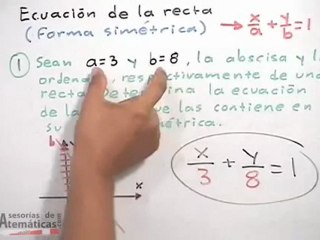 Ecuación de la recta
(Forma simétrica) → x/a + y/b = 1
① Sean a=3 y b=8, la abscisa y l
orden respectivamente de un
recta. Det a la ecuación
de la que las contiene en
su trica.
x/3 + y/8 = 1
x
Asesorias de
Matemáticas